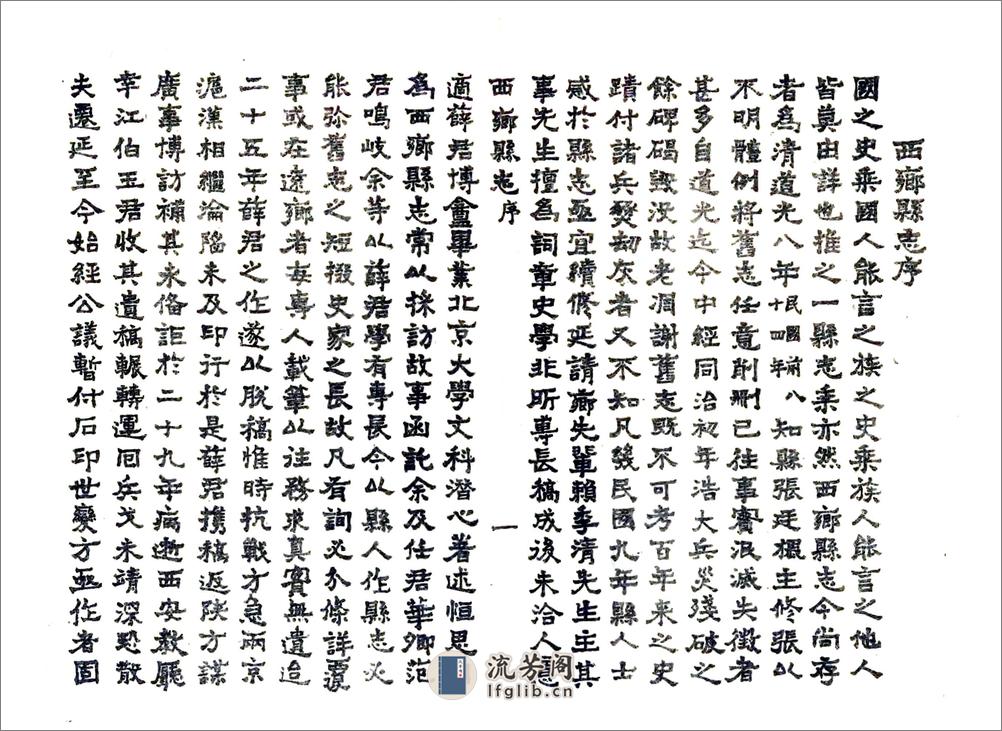 西鄉縣志序
國之史乘國人能言之族之史乘族人能言之他人
皆莫由詳也推之一縣志乘亦然西鄉縣志今尚存
者爲清道光八年民國前八十四年知縣張廷槐主修張以
不明體例將舊志任意削刪已往事實泯滅失徵者
甚多自道光迄今中經同治初年浩大兵災殘破之
餘碑碣毀没故老凋謝舊志既不可考百年來之史
蹟付諸兵燹劫灰者又不知凡幾民國九年縣人士
感於縣志亟宜續修延請鄉先輩賴季清先生主其
事先生擅爲詞章史學非所專長稿成後未洽人意
西鄉縣志序
一
適薛君博盦畢業北京大學文科潛心著述恒思
爲西鄉縣志常以採訪故事函託余及任君華卿范
君鳴岐余等以薛君學有專長今以縣人作縣志必
能弥舊志之短掇史家之長故凡有詢必分條詳覆
事或在遠鄉者每專人載筆以往務求真實無遺迨
二十五年薛君之作遂以脫稿惟時抗戰方急兩京
滬漢相繼淪陷未及印行於是薛君携稿返陕方謀
廣事博訪補其未俻詎於二十九年病逝西安教廳
幸江伯玉君收其遺稿輾轉運回兵戈未靖深恐散
失遷延至今始經公議暫付石印世變方亟作者固
流芳阁
lfglib.cn